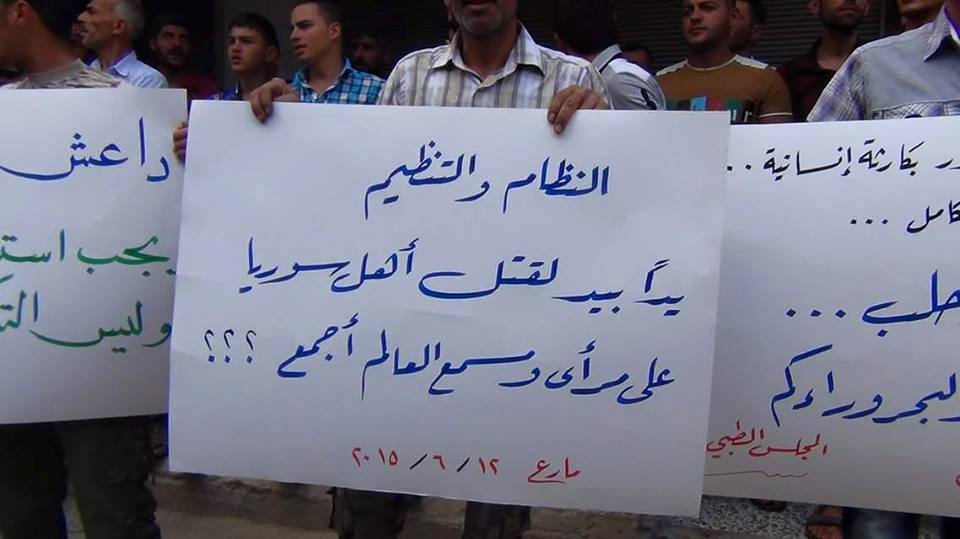 داعش
يجب
وليس
النظام والتنظيم
يدًا بيد لقتل أهل سوريا
على مرأى ومسمع العالم أجمع ؟؟؟
مارع ١٢ / ٦ / ٢٠١٥
بكارثة إنسانية ..
...
حلب ...
وراءكم
المجلس الطبي